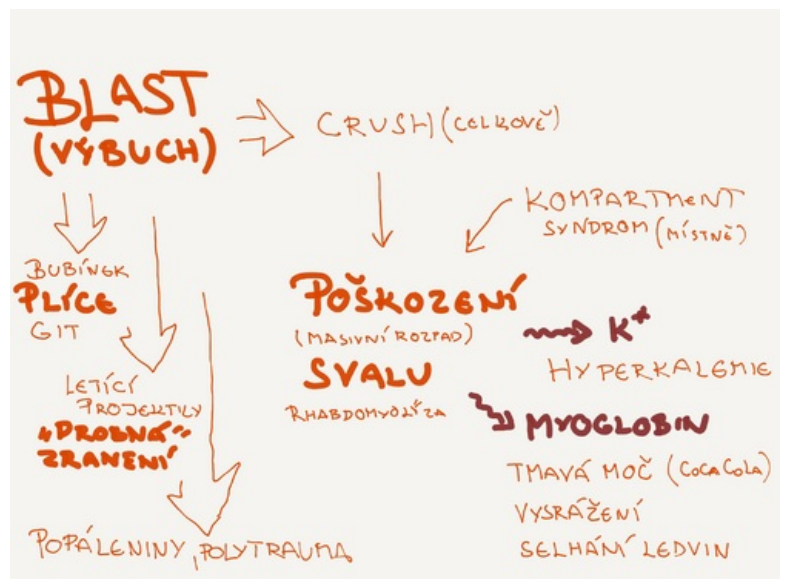 BLAST
(VÝBUCH)
CRUSH (CELKOVĚ)
KOMPARTMENT
SYNDROM (MÍSTNĚ)
BUBÍNEK
PLÍCE
GIT
LETÍCÍ
PROJEKTILY
"DROBNÁ"
ZRANENÍ
POPÁLENINY, POLYTRAUMA
POŠKOZENÍ
(MASIVNÍ ROZPAD)
SVALU
RHABDOMYOLÍZA
K+
HYPERKALEMIE
MYOGLOBIN
TMAVÁ MOČ (COCA COLA)
VYSRÁŽENÍ
SELHÁNÍ LEDVIN